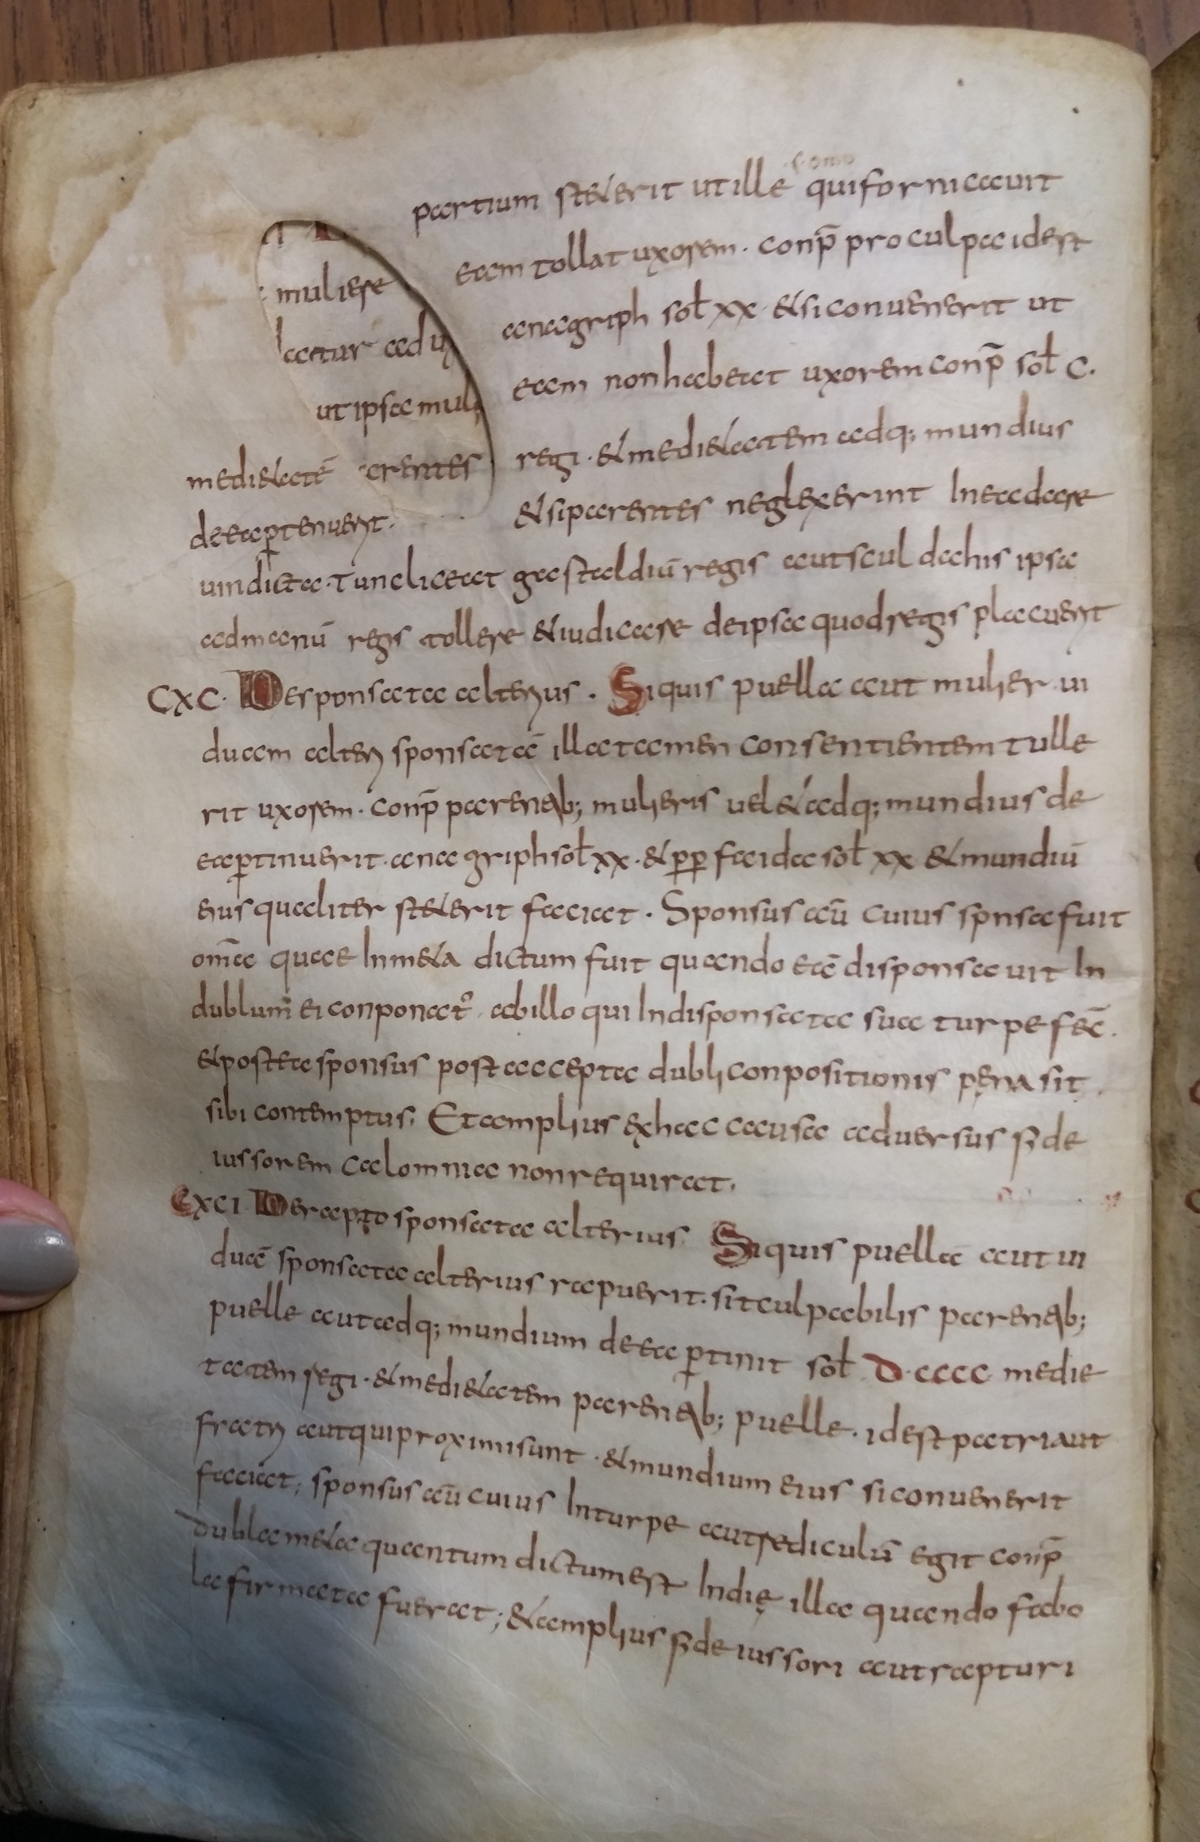 homo
partium steterit ut ille qui fornicauit
eam tollat uxorem. conp̄ pro culpa idest
muliere
anagriph sol̄ xx. & si conuenerit ut
latur ad ux
eam non habeat uxorem conp̄ sol̄ C.
ut ipsa muli
regi. & medietatem ad q; mundius
medietatē arentes
& si parentes neglexerint In ea dare
de ea ꝑtenuerit.
uindicta. tunc liceat gastaldiū regis aut sculdahis ipsa
ad manū regis tollere & iudicare de ipsa quod regis placuerit
CXC. Desponsata alterius. Siquis puella aut mulier ui
duam alterius sponsatā illa tamen consentientem tulle
rit uxorem. conp̄ parentib; mulieris uel & ad q; mundius de
ea ꝑtinuerit. anagriph sol̄ xx. & ꝑꝑ faida sol̄ xx & mundiū
eius qualiter steterit faciat. Sponsus aūt cuius spnsa fuit
om̄a quae In meta dictum fuit quando eā disponsauit In
dublum ei conponat᷑. ab illo qui In disponsata sua turpe fec̄.
& postea sponsus post accepta dubli conpositionis pena sit
sibi contemptus. Et amplius ęx hac causa aduersus fide
iussorem calomnia non requirat.
CXCI. De rapto sponsata alterius. Siquis puellā aut ui
duā sponsata alterius rapuerit. sit culpabilis parentib;
puelle aut ad q; mundium de ea ꝑtinit sol̄ D.CCCC medie
tatem regi. & medietatem parentib; puelle. idest patri aut
fratri aut qui proximi sunt. & mundium eius si conuenerit
faciat; sponsus aūt cuius In turpe aut rediculū egit conp̄
dubla meta quantum dictum est In dię illa quando fabo
la firmata fuerat; & amplius fideiussori aut rapturi